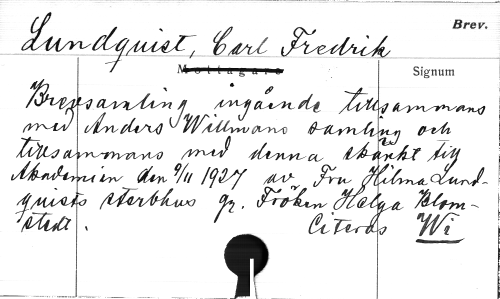 Brev.
Lundquist, Carl Fredrik
Mottagare
Signum
Brevsamling ingående tillsammans
med Anders Willmans samling och
tillsammans med denna skänkt till
Akademien den 9/11 1927 av Fru Hilma Lund-
quists sterbhus gn. Fröken Helga Blom-
stedt.
Citeras Wi